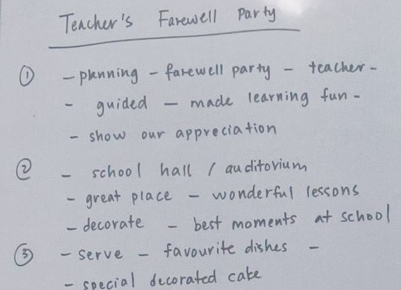 Teacher's Farewell Party
① - planning - farewell party - teacher -
- guided - made learning fun -
- show our appreciation
② - school hall / auditorium
- great place - wonderful lessons
- decorate - best moments at school
③ - serve - favourite dishes -
- special decorated cake